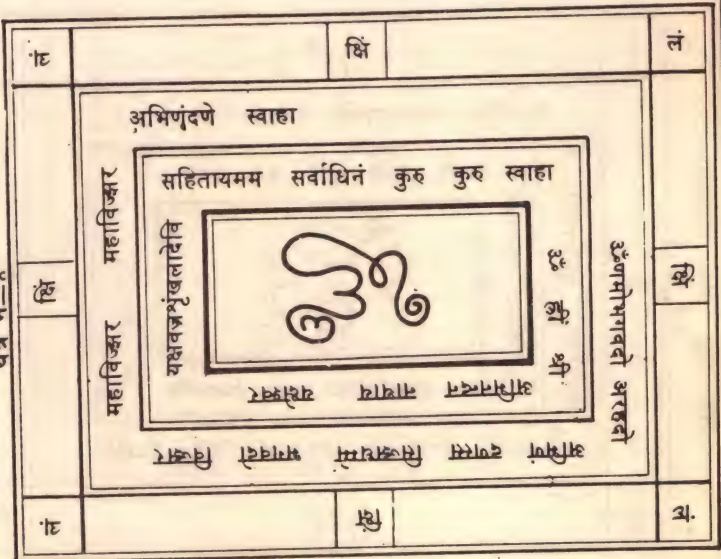 क्षिं
लं
क्षिं
क्षिं
लं
क्षिं
ॐणमोभगवदो अरहदो
अभिणं दणस्स सिज्झधम्मे भगवदो विज्झर
महाविज्झर महाविज्झर
अभिणंदणे स्वाहा
ॐ ह्रीं श्री
अभिनन्दन नाथाय यक्षेश्वर
यक्षवज्रशृंखलादेवि
सहितायमम सर्वाधिनं कुरु कुरु स्वाहा
ॐ